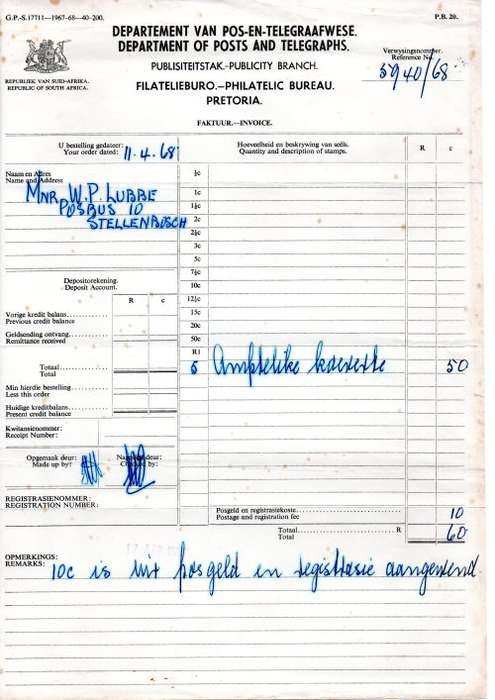 G.P.-S.17711—1967-68—40-200.
P.B. 20.
DEPARTEMENT VAN POS-EN-TELEGRAAFWESE.
DEPARTMENT OF POSTS AND TELEGRAPHS.
PUBLISITEITSTAK.-PUBLICITY BRANCH.
Verwysingsnommer.
Reference No.
5940/68
REPUBLIEK VAN SUID-AFRIKA.
REPUBLIC OF SOUTH AFRICA.
FILATELIEBURO.—PHILATELIC BUREAU.
PRETORIA.
FAKTUUR.—INVOICE.
U bestelling gedateer:
Your order dated: 11.4.68
Hoeveelheid en beskrywing van seëls.
Quantity and description of stamps.
R c
Naam en Adres
Name and Address
MNR W.P. LUBBE
POSBUS 10
STELLENBOSCH
½c
1c
1½c
2c
2½c
3c
5c
7½c
10c
12½c
15c
20c
50c
R1
Depositorekening.
Deposit Account.
R c
Vorige kredit balans
Previous credit balance
Geldsending ontvang
Remittance received
Totaal
Total
6 Amptelike koeverte 50
Min hierdie bestelling
Less this order
Huidige kreditbalans
Present credit balance
Kwitansienommer:
Receipt Number:
Opgemaak deur:
Made up by:
Nagesien deur:
Checked by:
REGISTRASIENOMMER:
REGISTRATION NUMBER:
Posgeld en registrasiekoste
Postage and registration fee
10
Totaal R
Total
60
OPMERKINGS:
REMARKS:
10c is vir posgeld en registrasie aangewend.